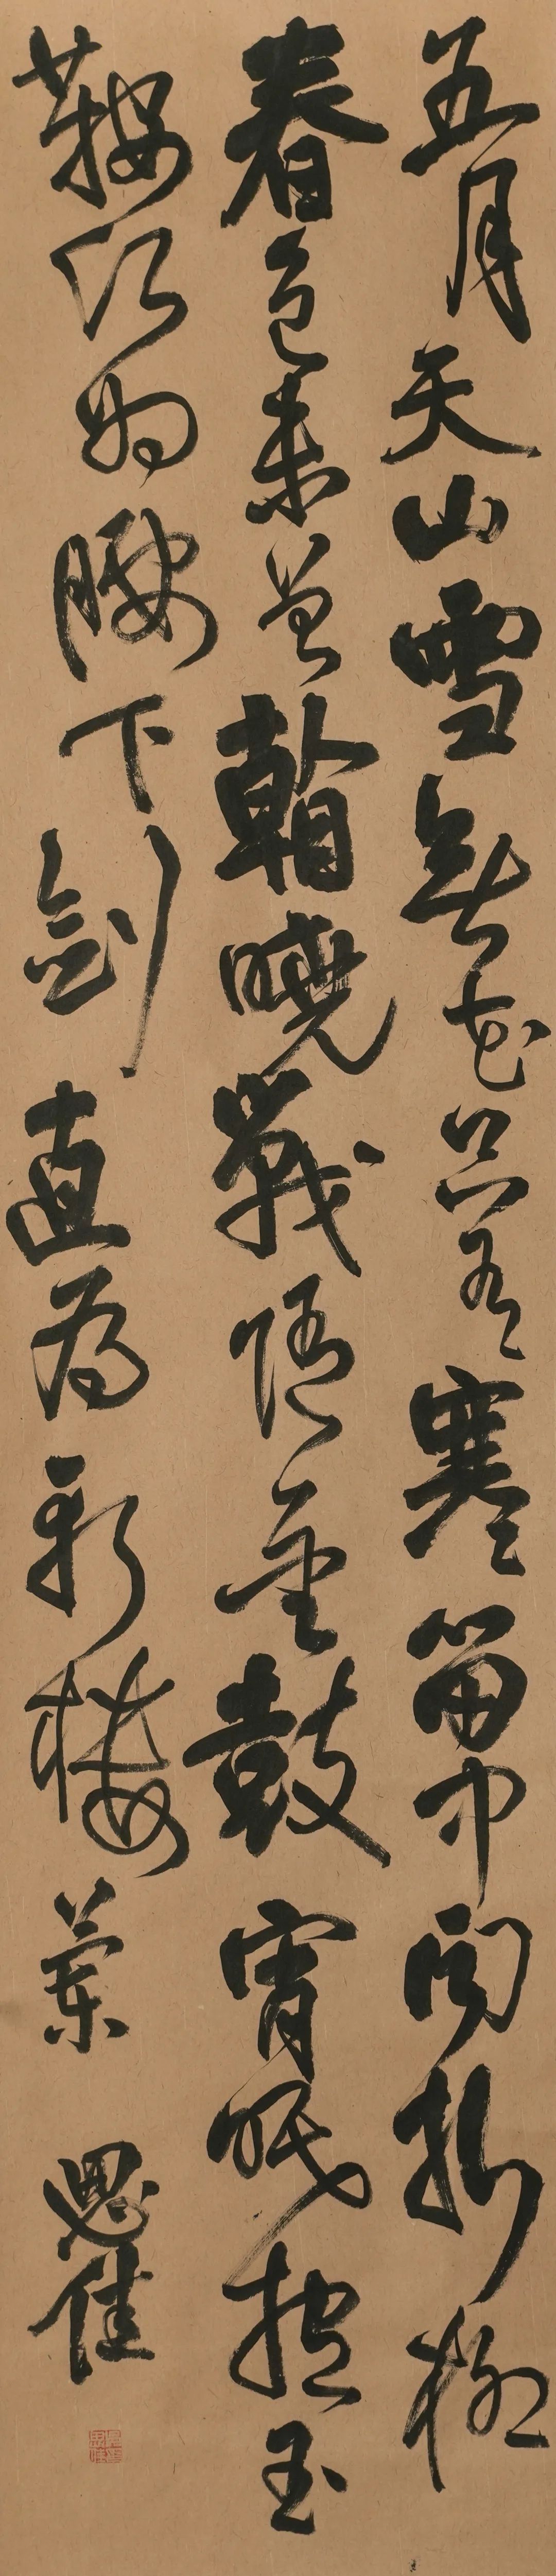 五月天山雪無花只有寒笛中聞折柳
春色未曾看曉戰隨金鼓宵眠抱玉
鞍願將腰下劍直為斬樓蘭 思佳